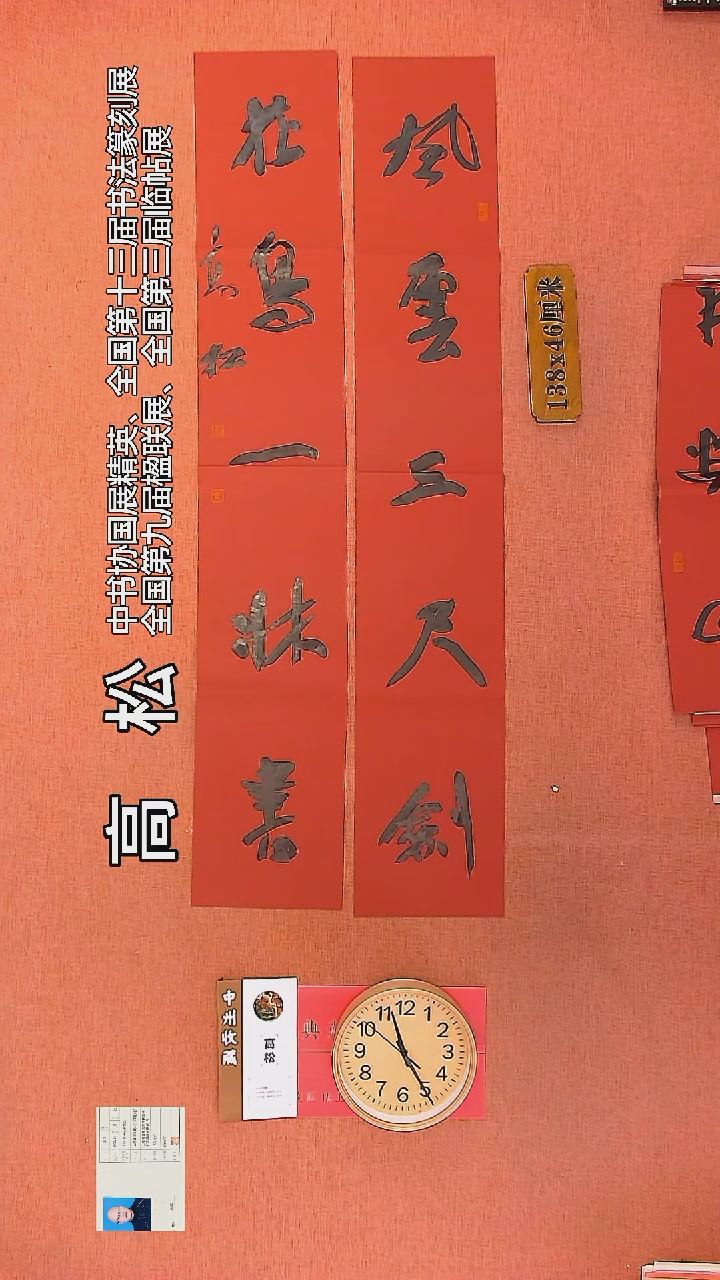 高 松
中书协国展精英、全国第十三届书法篆刻展
全国第九届楹联展、全国第三届临帖展
風雲三尺劍
花鳥一牀書
高松
138x46厘米
高松
典
12 1 2 3 4 5 6 7 8 9 10 11